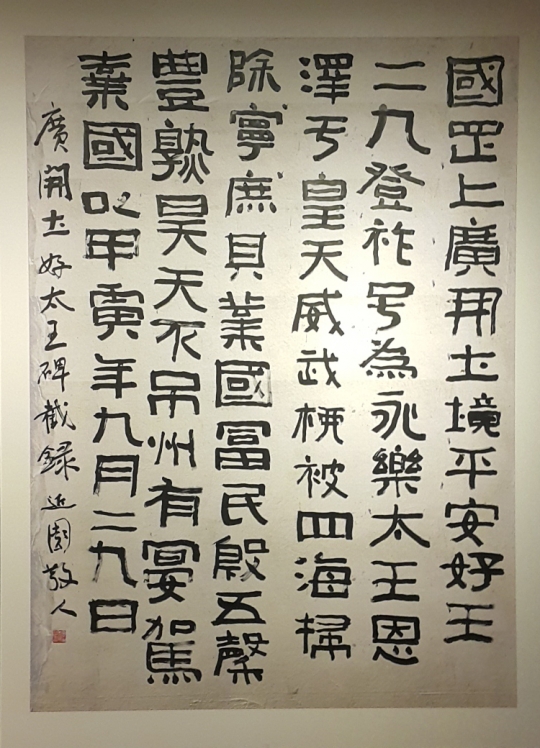 國罡上廣開土境平安好王
二九登祚号為永樂太王恩
澤亐皇天威武桺被四海掃
除寧庶其業國冨民殷五穀
豊熟昊天不弔州有宴駕
棄國以甲寅年九月二九日
廣開土好太王碑截録 近園敬人